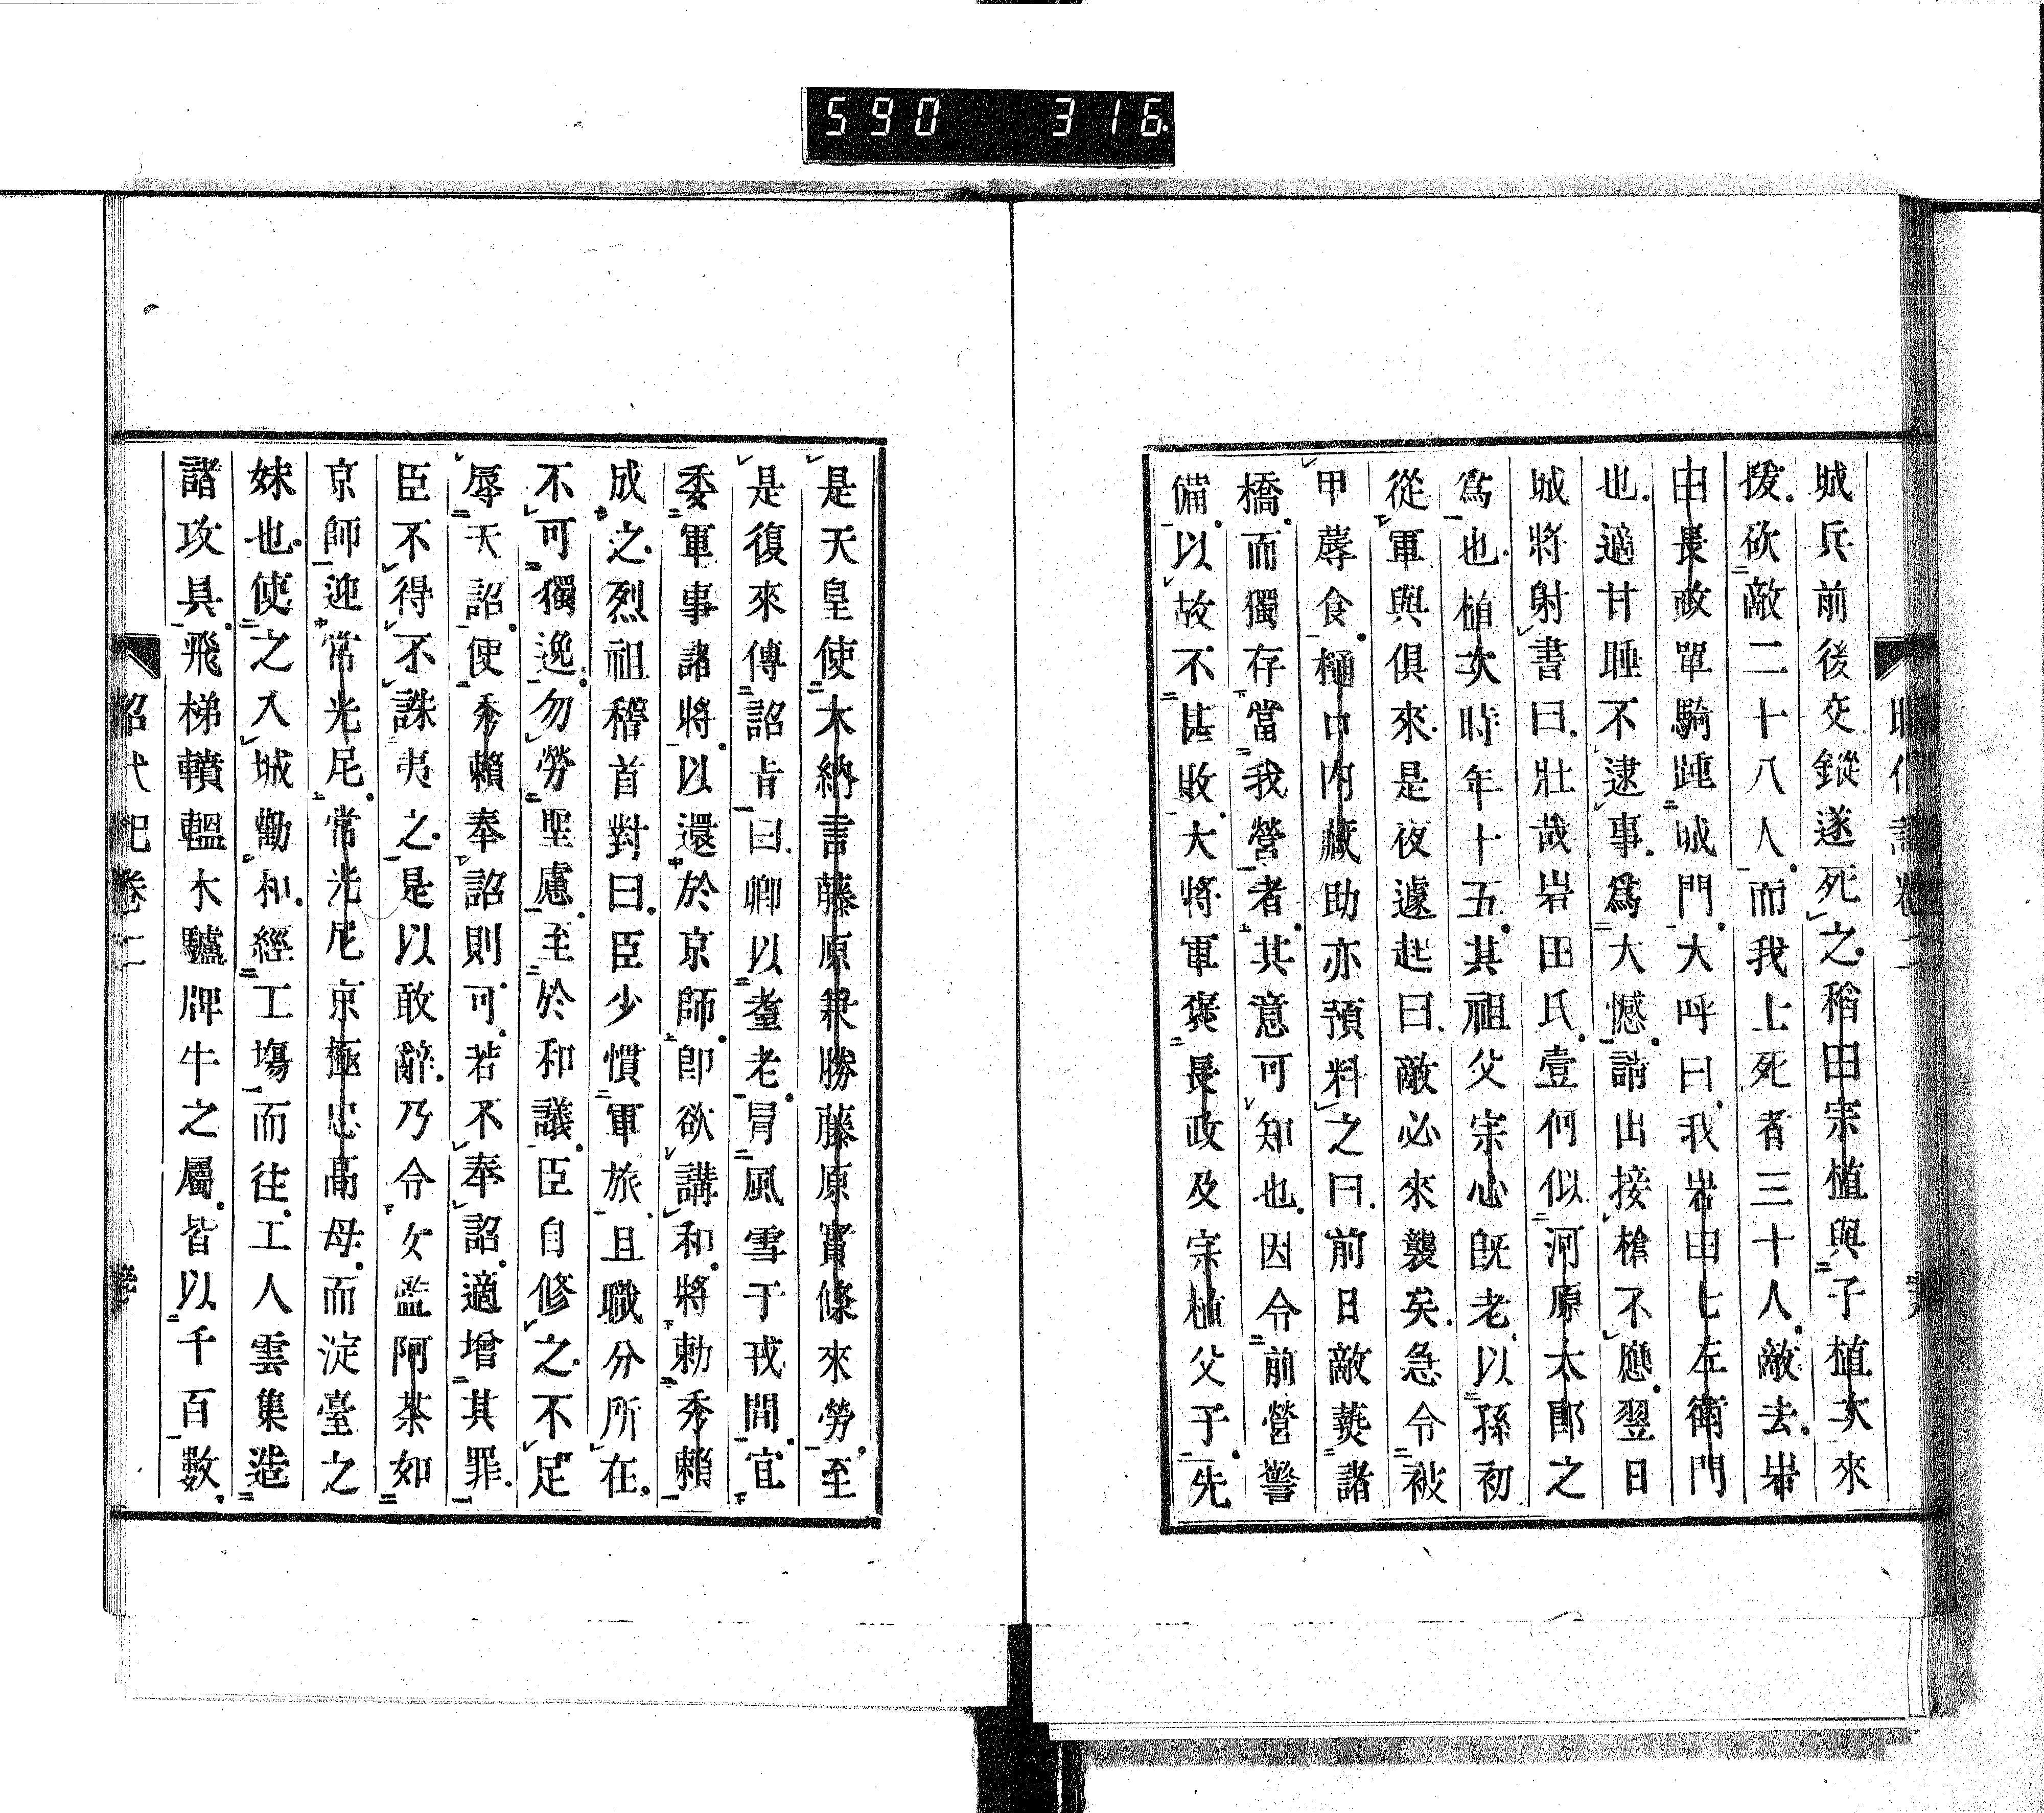 590 316
城兵前後交鏦遂死之。稻田宗植與子植次來
援。砍敵二十八人。而我士死者三十人。敵去。岩
田長政單騎踵城門。大呼曰。我岩田七左衛門
也。適甘睡不逮事。爲大憾。請出接槍。不應。翌日
城將射書曰。壯哉岩田氏。壹何似河原太郎之
爲也。植次時年十五。其祖父宗心旣老。以孫初
從軍與俱來。是夜遽起曰。敵必來襲矣。急令被
甲蓐食。樋口内藏助亦預料之曰。前日敵燹諸
橋。而獨存當我營者。其意可知也。因令前營警
備。以故不甚敗。大將軍褒長政及宗植父子。先
是天皇使大納言藤原兼勝藤原實條來勞。至
是復來傳詔旨曰。卿以耋老。冐風雪于戎間。宜
委軍事諸將。以還於京師。卽欲講和。將勅秀賴
成之。烈祖稽首對曰。臣少慣軍旅。且職分所在。
不可獨逸。勿勞聖慮。至於和議。臣自修之。不足
辱天詔。使秀賴奉詔則可。若不奉詔。適增其罪。
臣不得不誅夷之。是以敢辭。乃令女監阿茶如
京師迎常光尼。常光尼京極忠高母。而淀臺之
妹也。使之入城勸和。經工塲而往。工人雲集造
諸攻具。飛梯轒轀木驢牌牛之屬。皆以千百數。
昭代記卷二